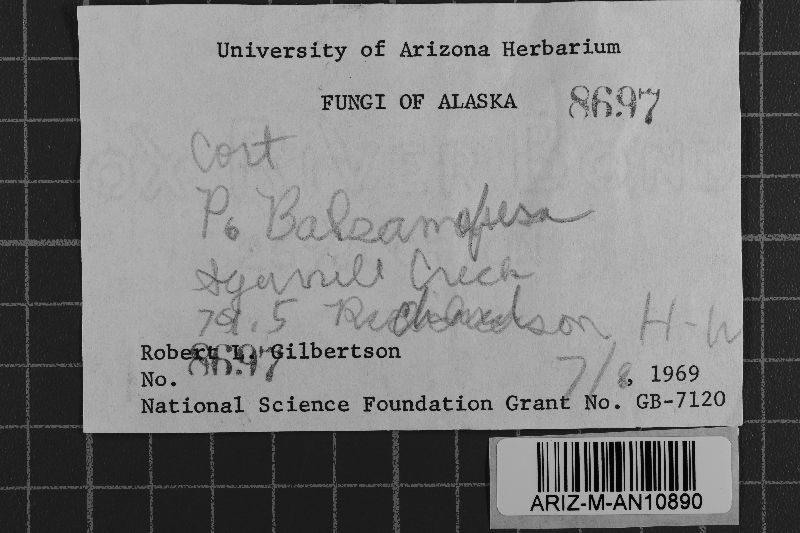 University of Arizona Herbarium
FUNGI OF ALASKA 8697
Cort
P. Balsamifera
Creek
79.5 Richardson H-W
Robert L. Gilbertson
8697
No. 7/8, 1969
National Science Foundation Grant No. GB-7120
ARIZ-M-AN10890